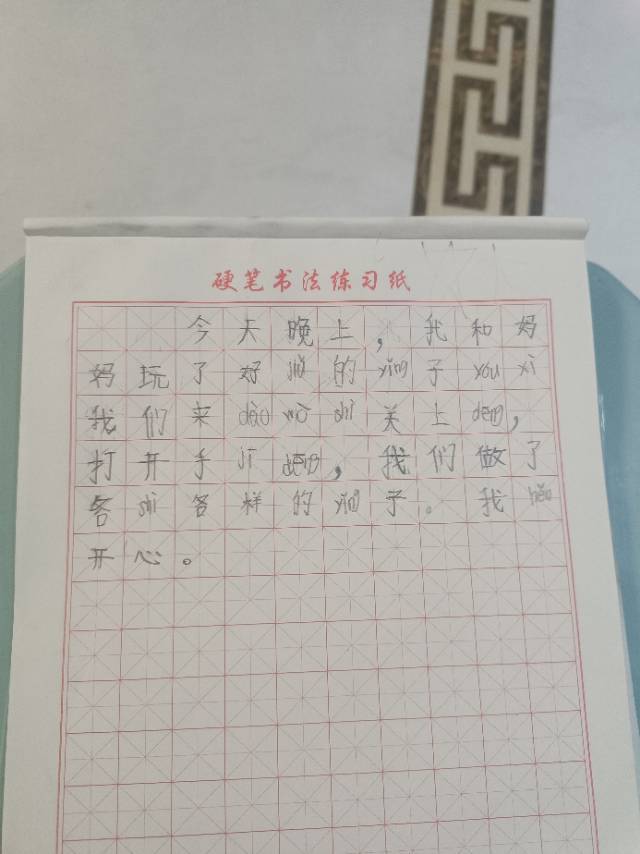 硬笔书法练习纸
今天晚上，我和妈
妈玩了好 jiǔ 的 yǐng 子 you xì
我们来 dào wò shì 关上 dēng，
打开手 jī dēng，我们做了
各 shì 各样的 yǐng 子。我 hěn
开心。